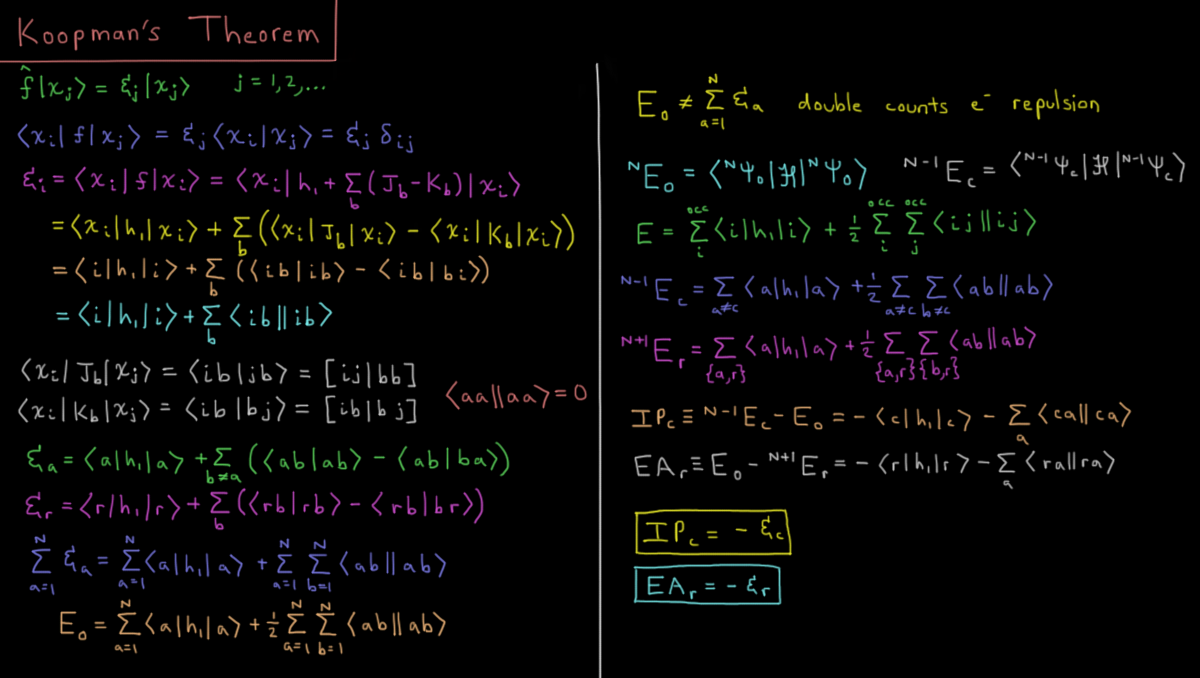 Koopman's Theorem
f̂|χⱼ⟩ = ℰⱼ|χⱼ⟩ j = 1,2,...
⟨χᵢ|f|χⱼ⟩ = ℰⱼ⟨χᵢ|χⱼ⟩ = ℰⱼ δᵢⱼ
ℰᵢ = ⟨χᵢ|f|χᵢ⟩ = ⟨χᵢ|h₁ + Σ_b (J_b - K_b)|χᵢ⟩
= ⟨χᵢ|h₁|χᵢ⟩ + Σ_b (⟨χᵢ|J_b|χᵢ⟩ - ⟨χᵢ|K_b|χᵢ⟩)
= ⟨i|h₁|i⟩ + Σ_b (⟨ib|ib⟩ - ⟨ib|bi⟩)
= ⟨i|h₁|i⟩ + Σ_b ⟨ib||ib⟩
⟨χᵢ|J_b|χⱼ⟩ = ⟨ib|jb⟩ = [ij|bb]
⟨χᵢ|K_b|χⱼ⟩ = ⟨ib|bj⟩ = [ib|bj]
⟨aa||aa⟩ = 0
ℰ_a = ⟨a|h₁|a⟩ + Σ_{b≠a} (⟨ab|ab⟩ - ⟨ab|ba⟩)
ℰ_r = ⟨r|h₁|r⟩ + Σ_b (⟨rb|rb⟩ - ⟨rb|br⟩)
Σ_{a=1}^N ℰ_a = Σ_{a=1}^N ⟨a|h₁|a⟩ + Σ_{a=1}^N Σ_{b=1}^N ⟨ab||ab⟩
E₀ = Σ_{a=1}^N ⟨a|h₁|a⟩ + ½ Σ_{a=1}^N Σ_{b=1}^N ⟨ab||ab⟩
E₀ ≠ Σ_{a=1}^N ℰ_a double counts e⁻ repulsion
ᴺE₀ = ⟨ᴺΨ₀|ℋ|ᴺΨ₀⟩ ᴺ⁻¹E_c = ⟨ᴺ⁻¹Ψ_c|ℋ|ᴺ⁻¹Ψ_c⟩
E = Σ_i^{occ} ⟨i|h₁|i⟩ + ½ Σ_i^{occ} Σ_j^{occ} ⟨ij||ij⟩
ᴺ⁻¹E_c = Σ_{a≠c} ⟨a|h₁|a⟩ + ½ Σ_{a≠c} Σ_{b≠c} ⟨ab||ab⟩
ᴺ⁺¹E_r = Σ_{{a,r}} ⟨a|h₁|a⟩ + ½ Σ_{{a,r}} Σ_{{b,r}} ⟨ab||ab⟩
IP_c ≡ ᴺ⁻¹E_c - E₀ = -⟨c|h₁|c⟩ - Σ_a ⟨ca||ca⟩
EA_r ≡ E₀ - ᴺ⁺¹E_r = -⟨r|h₁|r⟩ - Σ_a ⟨ra||ra⟩
IP_c = -ℰ_c
EA_r = -ℰ_r